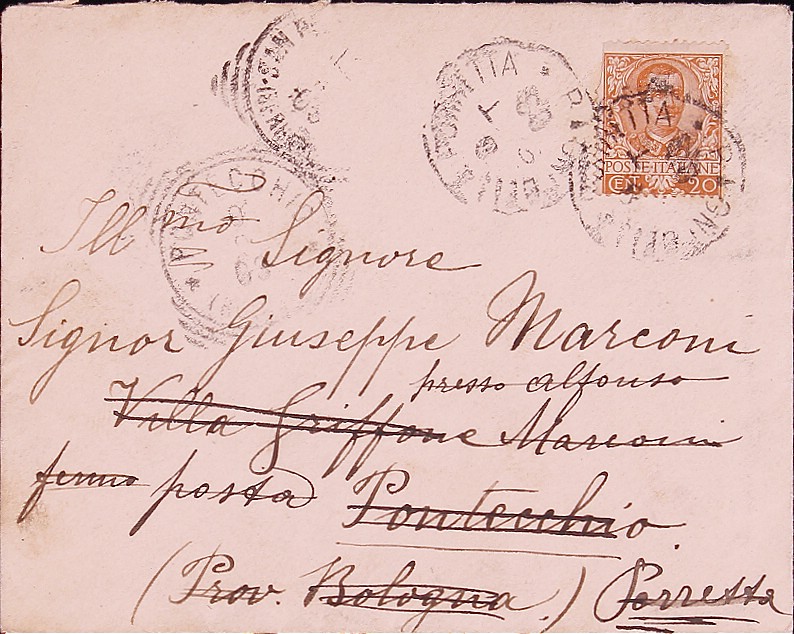 POSTE ITALIANE
CENT. 20
PONTECCHIO
Ill mo Signore
Signor Giuseppe Marconi
presso Alfonso
Villa Griffone Marconi
fermo posta Pontecchio
(Prov. Bologna) Porretta